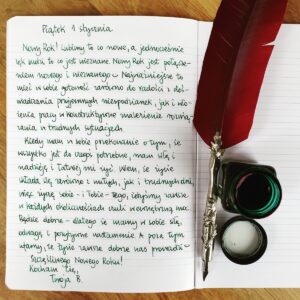 Piątek 1 stycznia
Nowy Rok! Lubimy to co nowe, a jednocześnie
lęk budzi to co jest nieznane. Nowy Rok jest połącze-
niem nowego i nieznanego - Najważniejsze to
mieć w sobie gotowość zarówno do radości i do-
świadczania przyjemnych niespodzianek, jak i wło-
żenia pracy w konstruktywne znalezienie rozwią-
zania w trudnych sytuacjach.
Kiedy mam w sobie przekonanie o tym, że
wszystko jest do czegoś potrzebne, mam siłę i
nadzieję i łatwiej mi żyć. Wiem, że życie
składa się zarówno z miłych, jak i trudnych dni,
więc życzę sobie - i Tobie - tego, żebyśmy zawsze
w każdych okolicznościach czuli wewnętrzną moc
Będzie dobrze - dlatego że mamy w sobie siłę,
odwagę i pozytywne nastawienie. A poza tym
ufamy, że życie zawsze dobrze nas prowadzi
Szczęśliwego Nowego Roku!
Kocham Cię,
Twoja B.